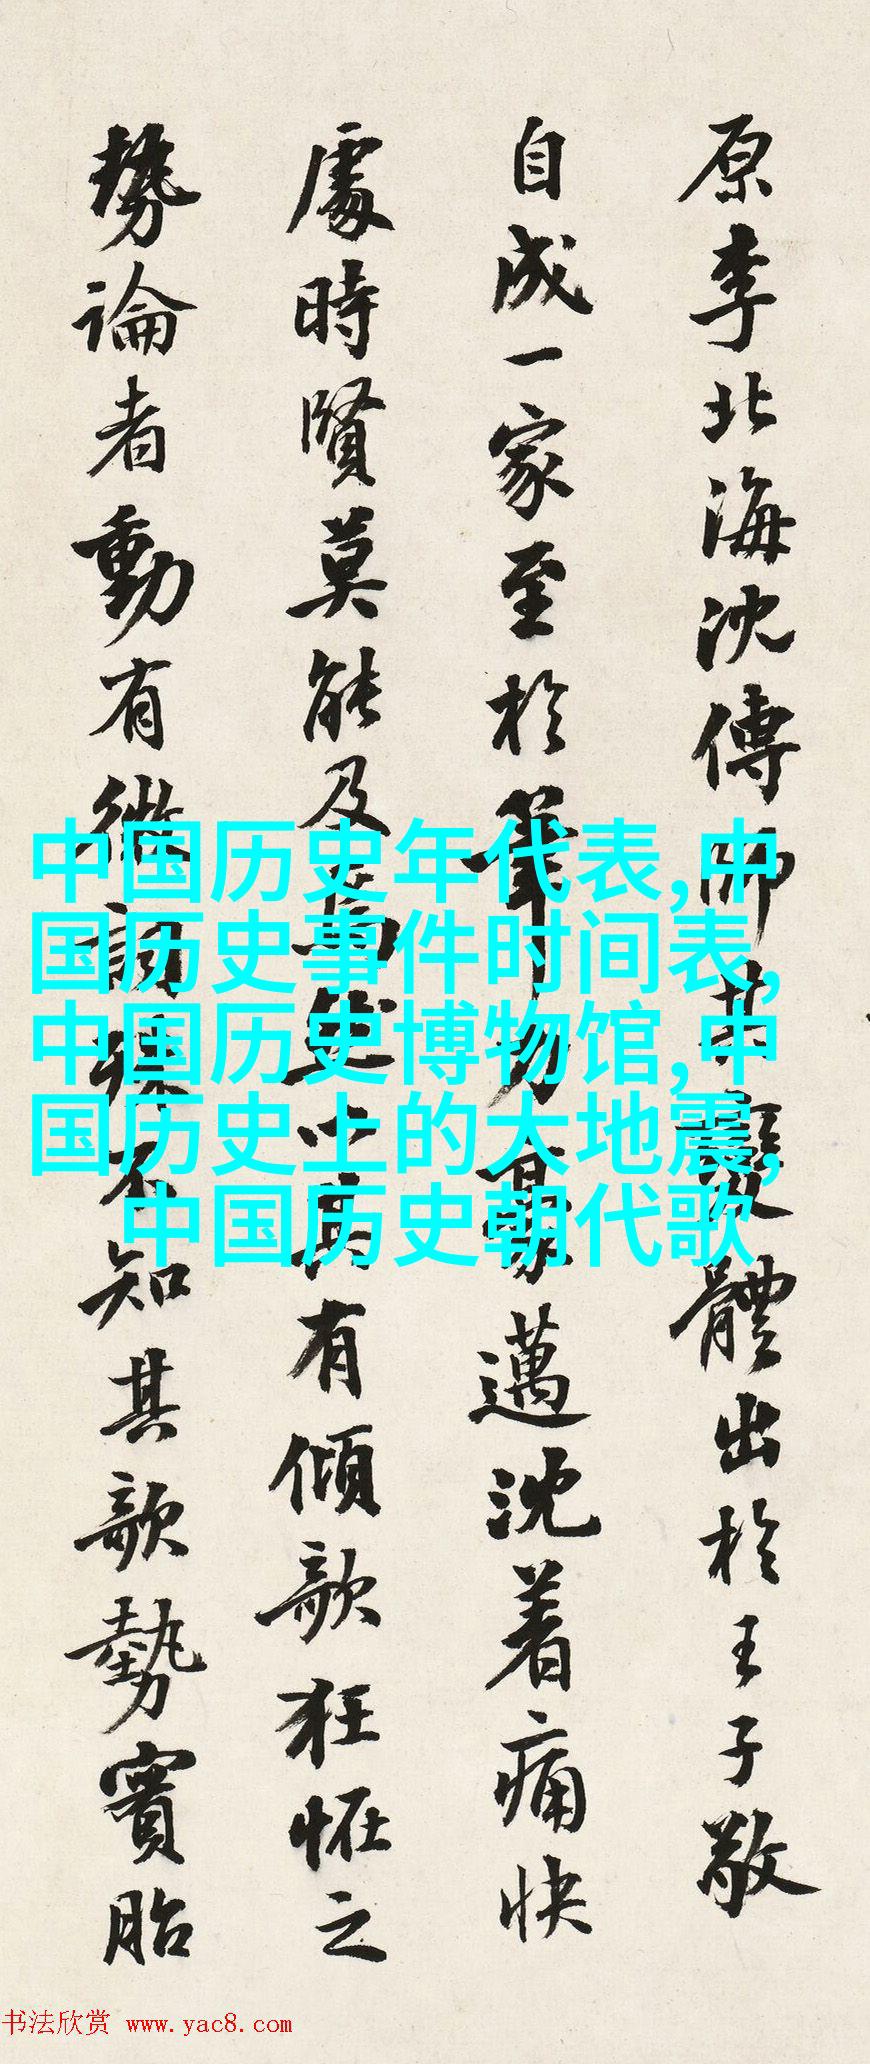 原李北海沈傳師其變體出於王子敬
自成一家至於筆力豪邁沈着痛快
處時賢莫能及焉然以其有傾欹狂怪之
勢論者動有微詞殊不知其欹勢實胎
中国历史年代表,中
国历史事件时间表,
中国历史博物馆,中
国历史上的大地震,
中国历史朝代歌
书法欣赏 www.yac8.com